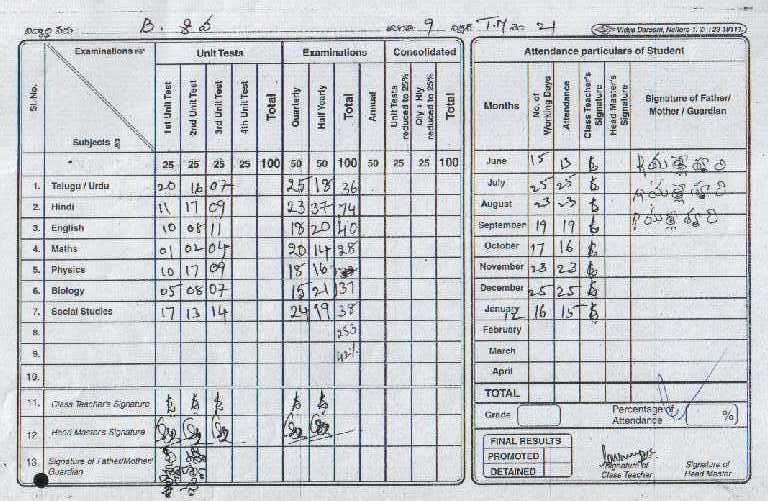 B. శివ 9 T.M 21
Vidya Darsini, Nellore
Examinations Unit Tests Examinations Consolidated
Sl. No. Subjects 1st Unit Test 2nd Unit Test 3rd Unit Test 4th Unit Test Total Quarterly Half Yearly Total Annual Unit Tests reduced to 25% Qly / Hly reduced to 25% Total
25 25 25 25 100 50 50 100 50 25 25 100
1. Telugu / Urdu 20 16 07 25 18 36
2. Hindi 11 17 09 23 37 74
3. English 10 08 11 18 20 40
4. Maths 01 02 04 20 14 28
5. Physics 10 17 09 18 16
6. Biology 05 08 07 15 21 37
7. Social Studies 17 13 14 24 19 38
8. 253
9. 42%
10.
11. Class Teacher's Signature
12. Head Master's Signature
13. Signature of Father/Mother/
Guardian
Attendance particulars of Student
Months No. of Working Days Attendance Class Teacher's Signature Head Master's Signature Signature of Father/
Mother / Guardian
June 15 13
July 25 25
August 23 23
September 19 19
October 17 16
November 23 23
December 25 25
January 16 15
February
March
April
TOTAL
Grade Percentage of
Attendance ( %)
FINAL RESULTS
PROMOTED
DETAINED
Signature of
Class Teacher
Signature of
Head Master